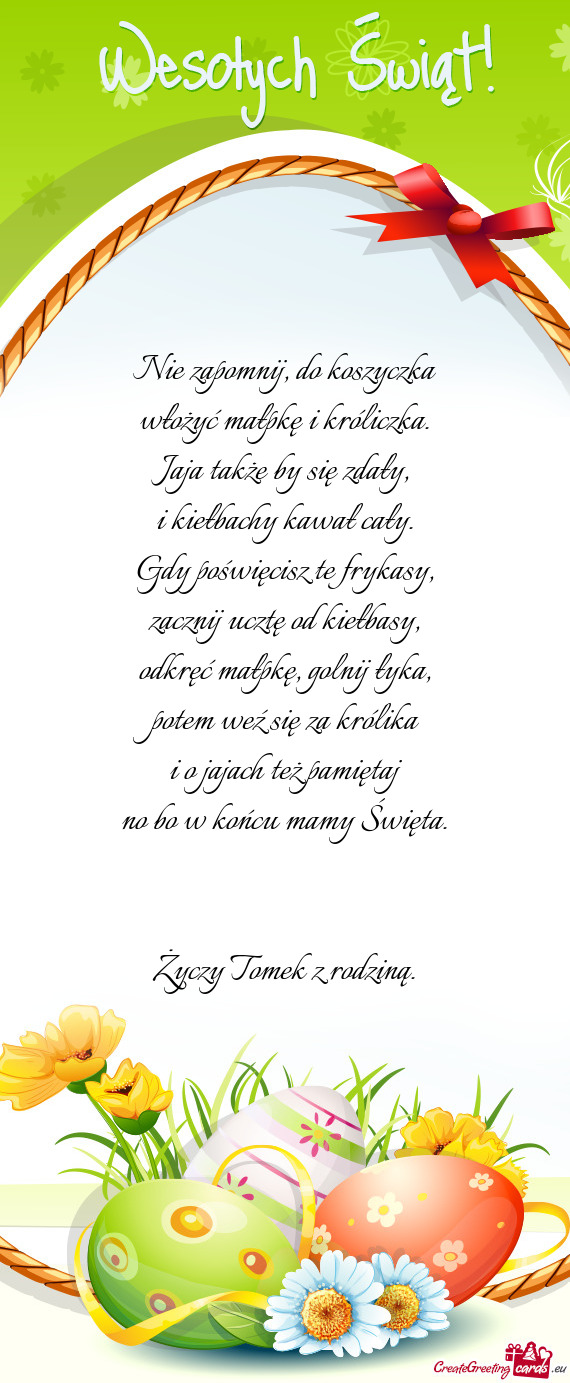 Wesołych Świąt!
Nie zapomnij, do koszyczka
włożyć małpkę i króliczka.
Jaja także by się zdały,
i kiełbachy kawał cały.
Gdy poświęcisz te frykasy,
zacznij ucztę od kiełbasy,
odkręć małpkę, golnij łyka,
potem weź się za królika
i o jajach też pamiętaj
no bo w końcu mamy Święta.
Życzy Tomek z rodziną.
CreateGreeting cards .eu